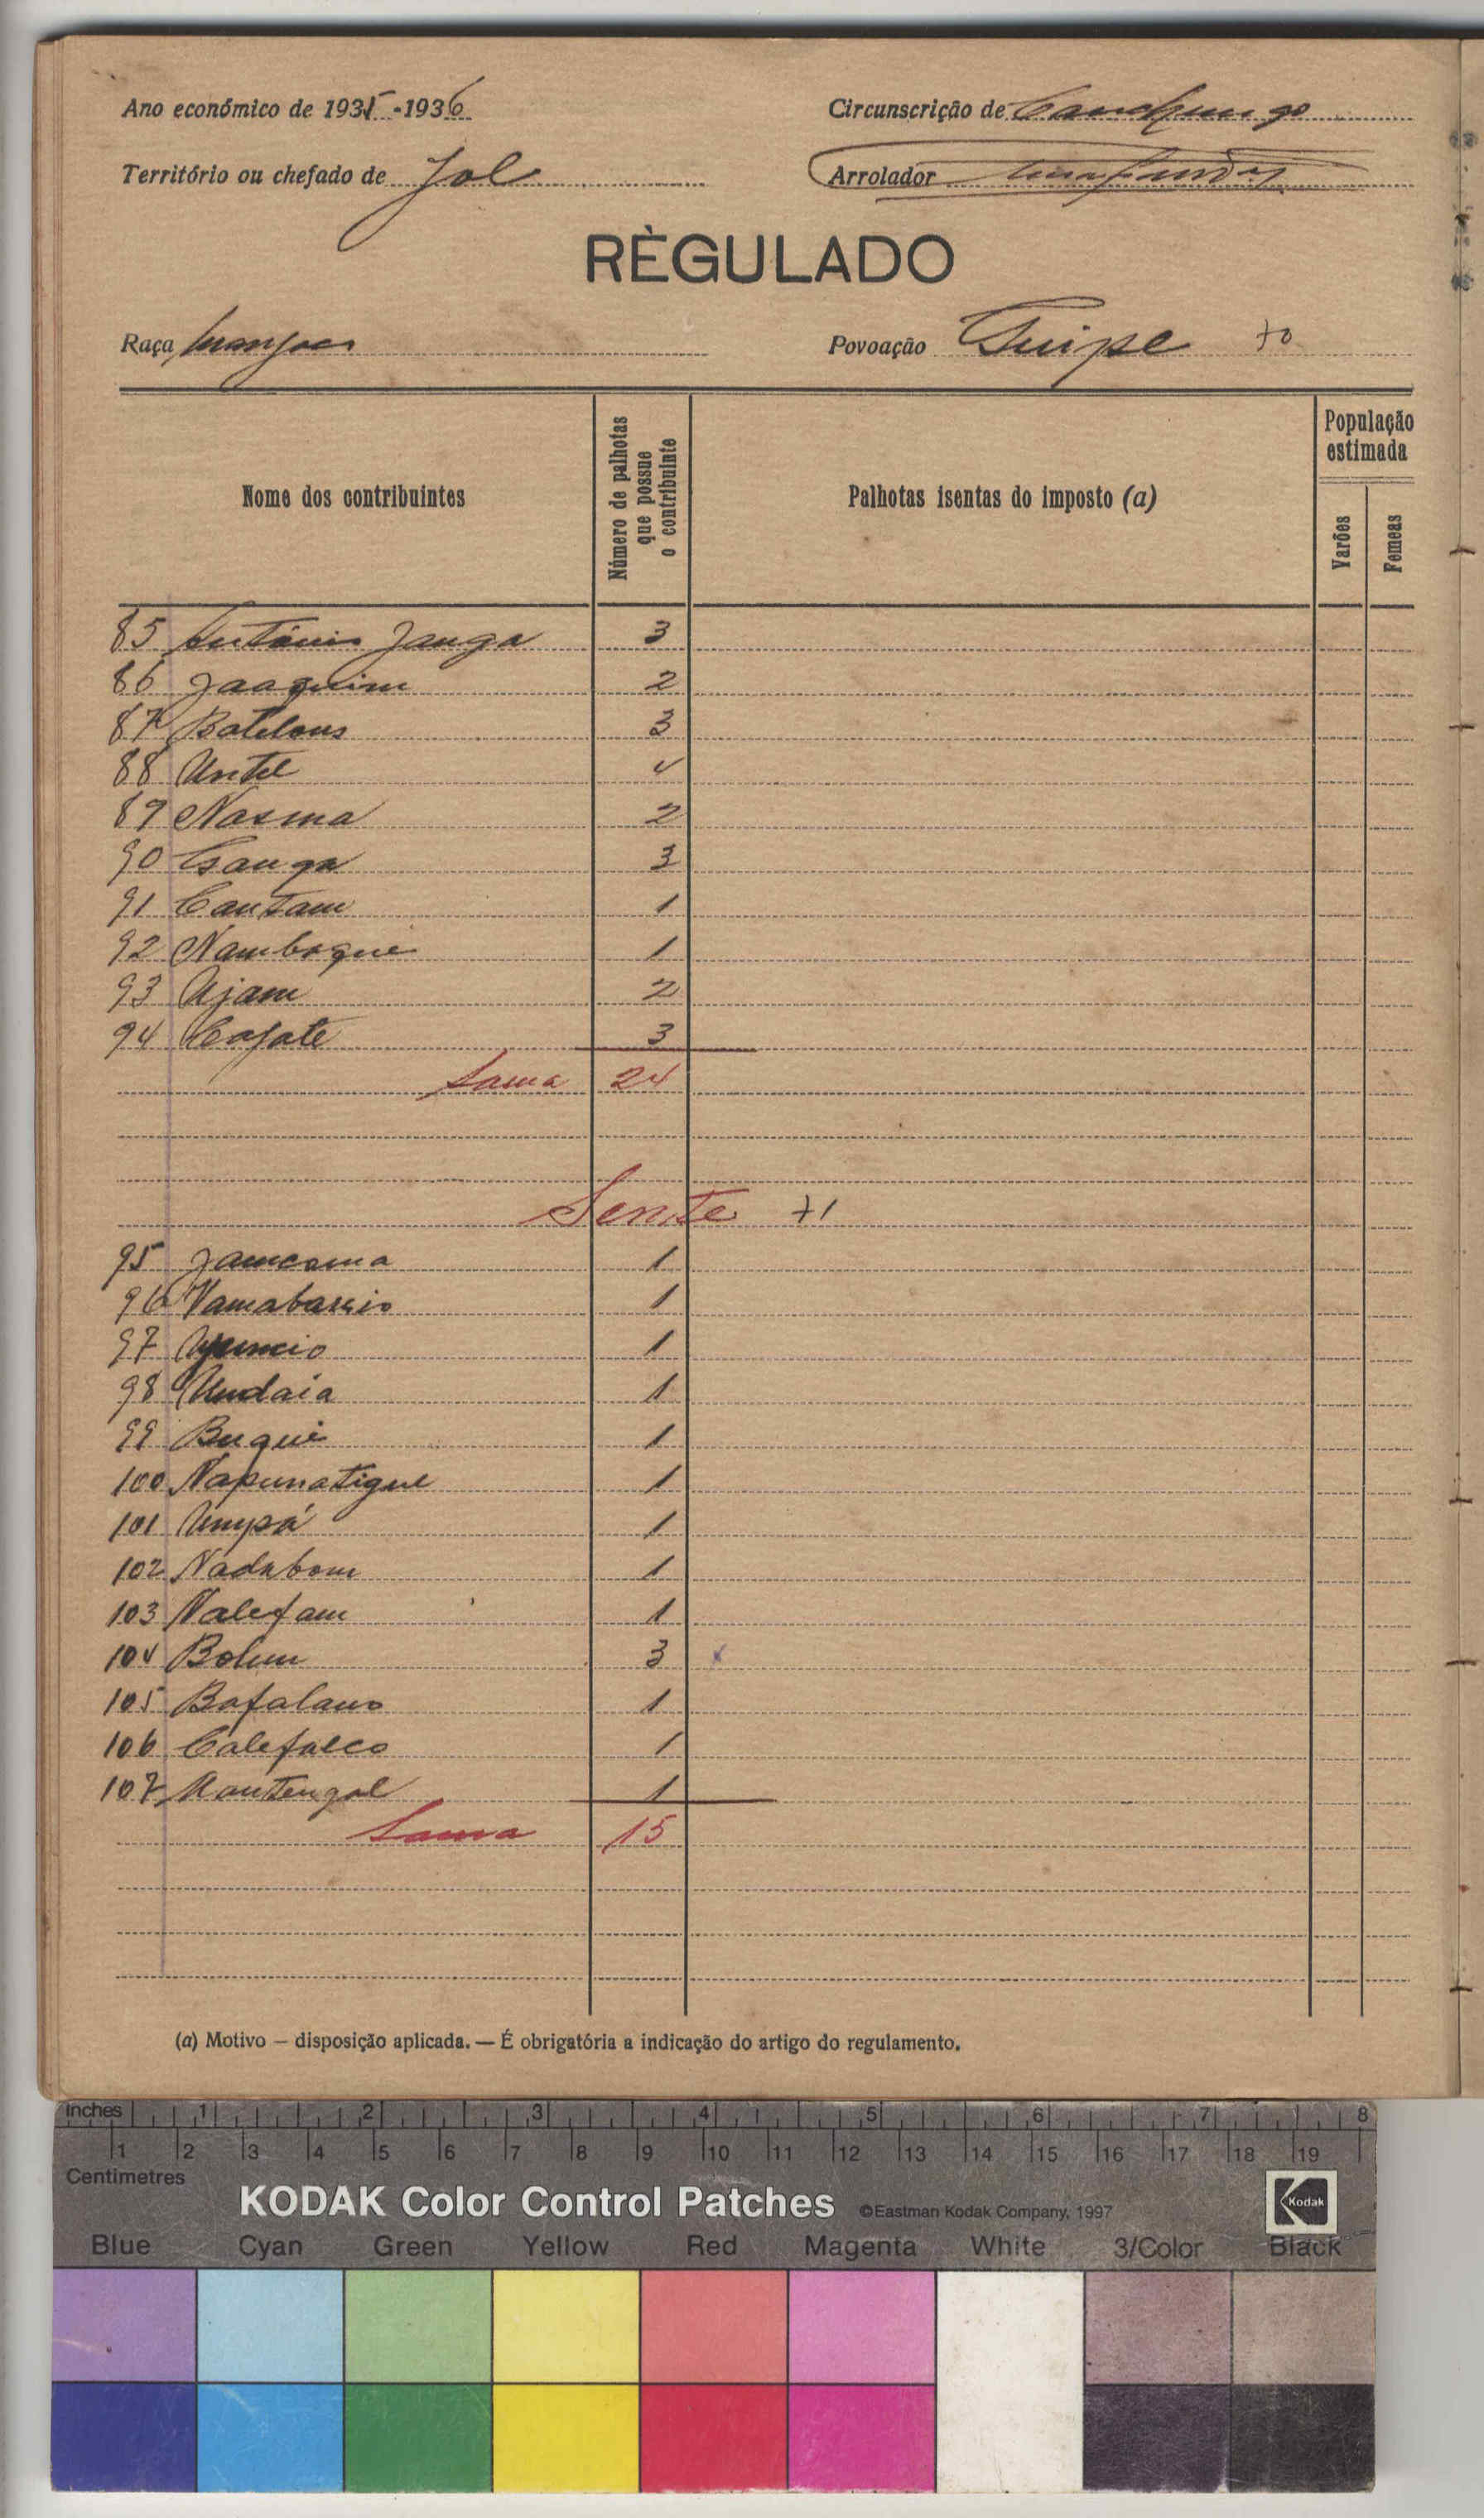 Ano económico de 1935-1936
Circunscrição de Canchungo
Território ou chefado de Jol
Arrolador
RÈGULADO
Raça Manjaca
Povoação Tuipe 70
Nome dos contribuintes
Número de palhotas que possue o contribuinte
Palhotas isentas do imposto (a)
População estimada
Varões
Femeas
85 António Janga 3
86 Jaaquim 2
87 Batelous 3
88 Untel 4
89 Nasma 2
90 Canga 3
91 Cantam 1
92 Namboque 1
93 Ujam 2
94 Cafate 3
Soma 24
Sente 71
95 Jamcoma 1
96 Vamabassio 1
97 1
98 Undaia 1
99 Buque 1
100 Napunatigue 1
101 Umpá 1
102 Nadabom 1
103 Nalefam 1
104 Bolum 3
105 Bafalano 1
106 Calefalco 1
107 1
Soma 15
(a) Motivo — disposição aplicada. — É obrigatória a indicação do artigo do regulamento.
inches 1 2 3 4 5 6 7 8
1 2 3 4 5 6 7 8 9 10 11 12 13 14 15 16 17 18 19
Centimetres
KODAK Color Control Patches ©Eastman Kodak Company, 1997
Kodak
Blue Cyan Green Yellow Red Magenta White 3/Color Black